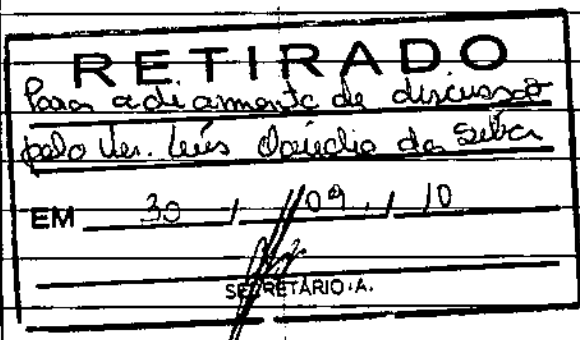 RETIRADO
Para adiamento de discussão
pelo Ver. Luís Cláudio da Silva
EM 30 / 09 / 10
SECRETÁRIO.A.